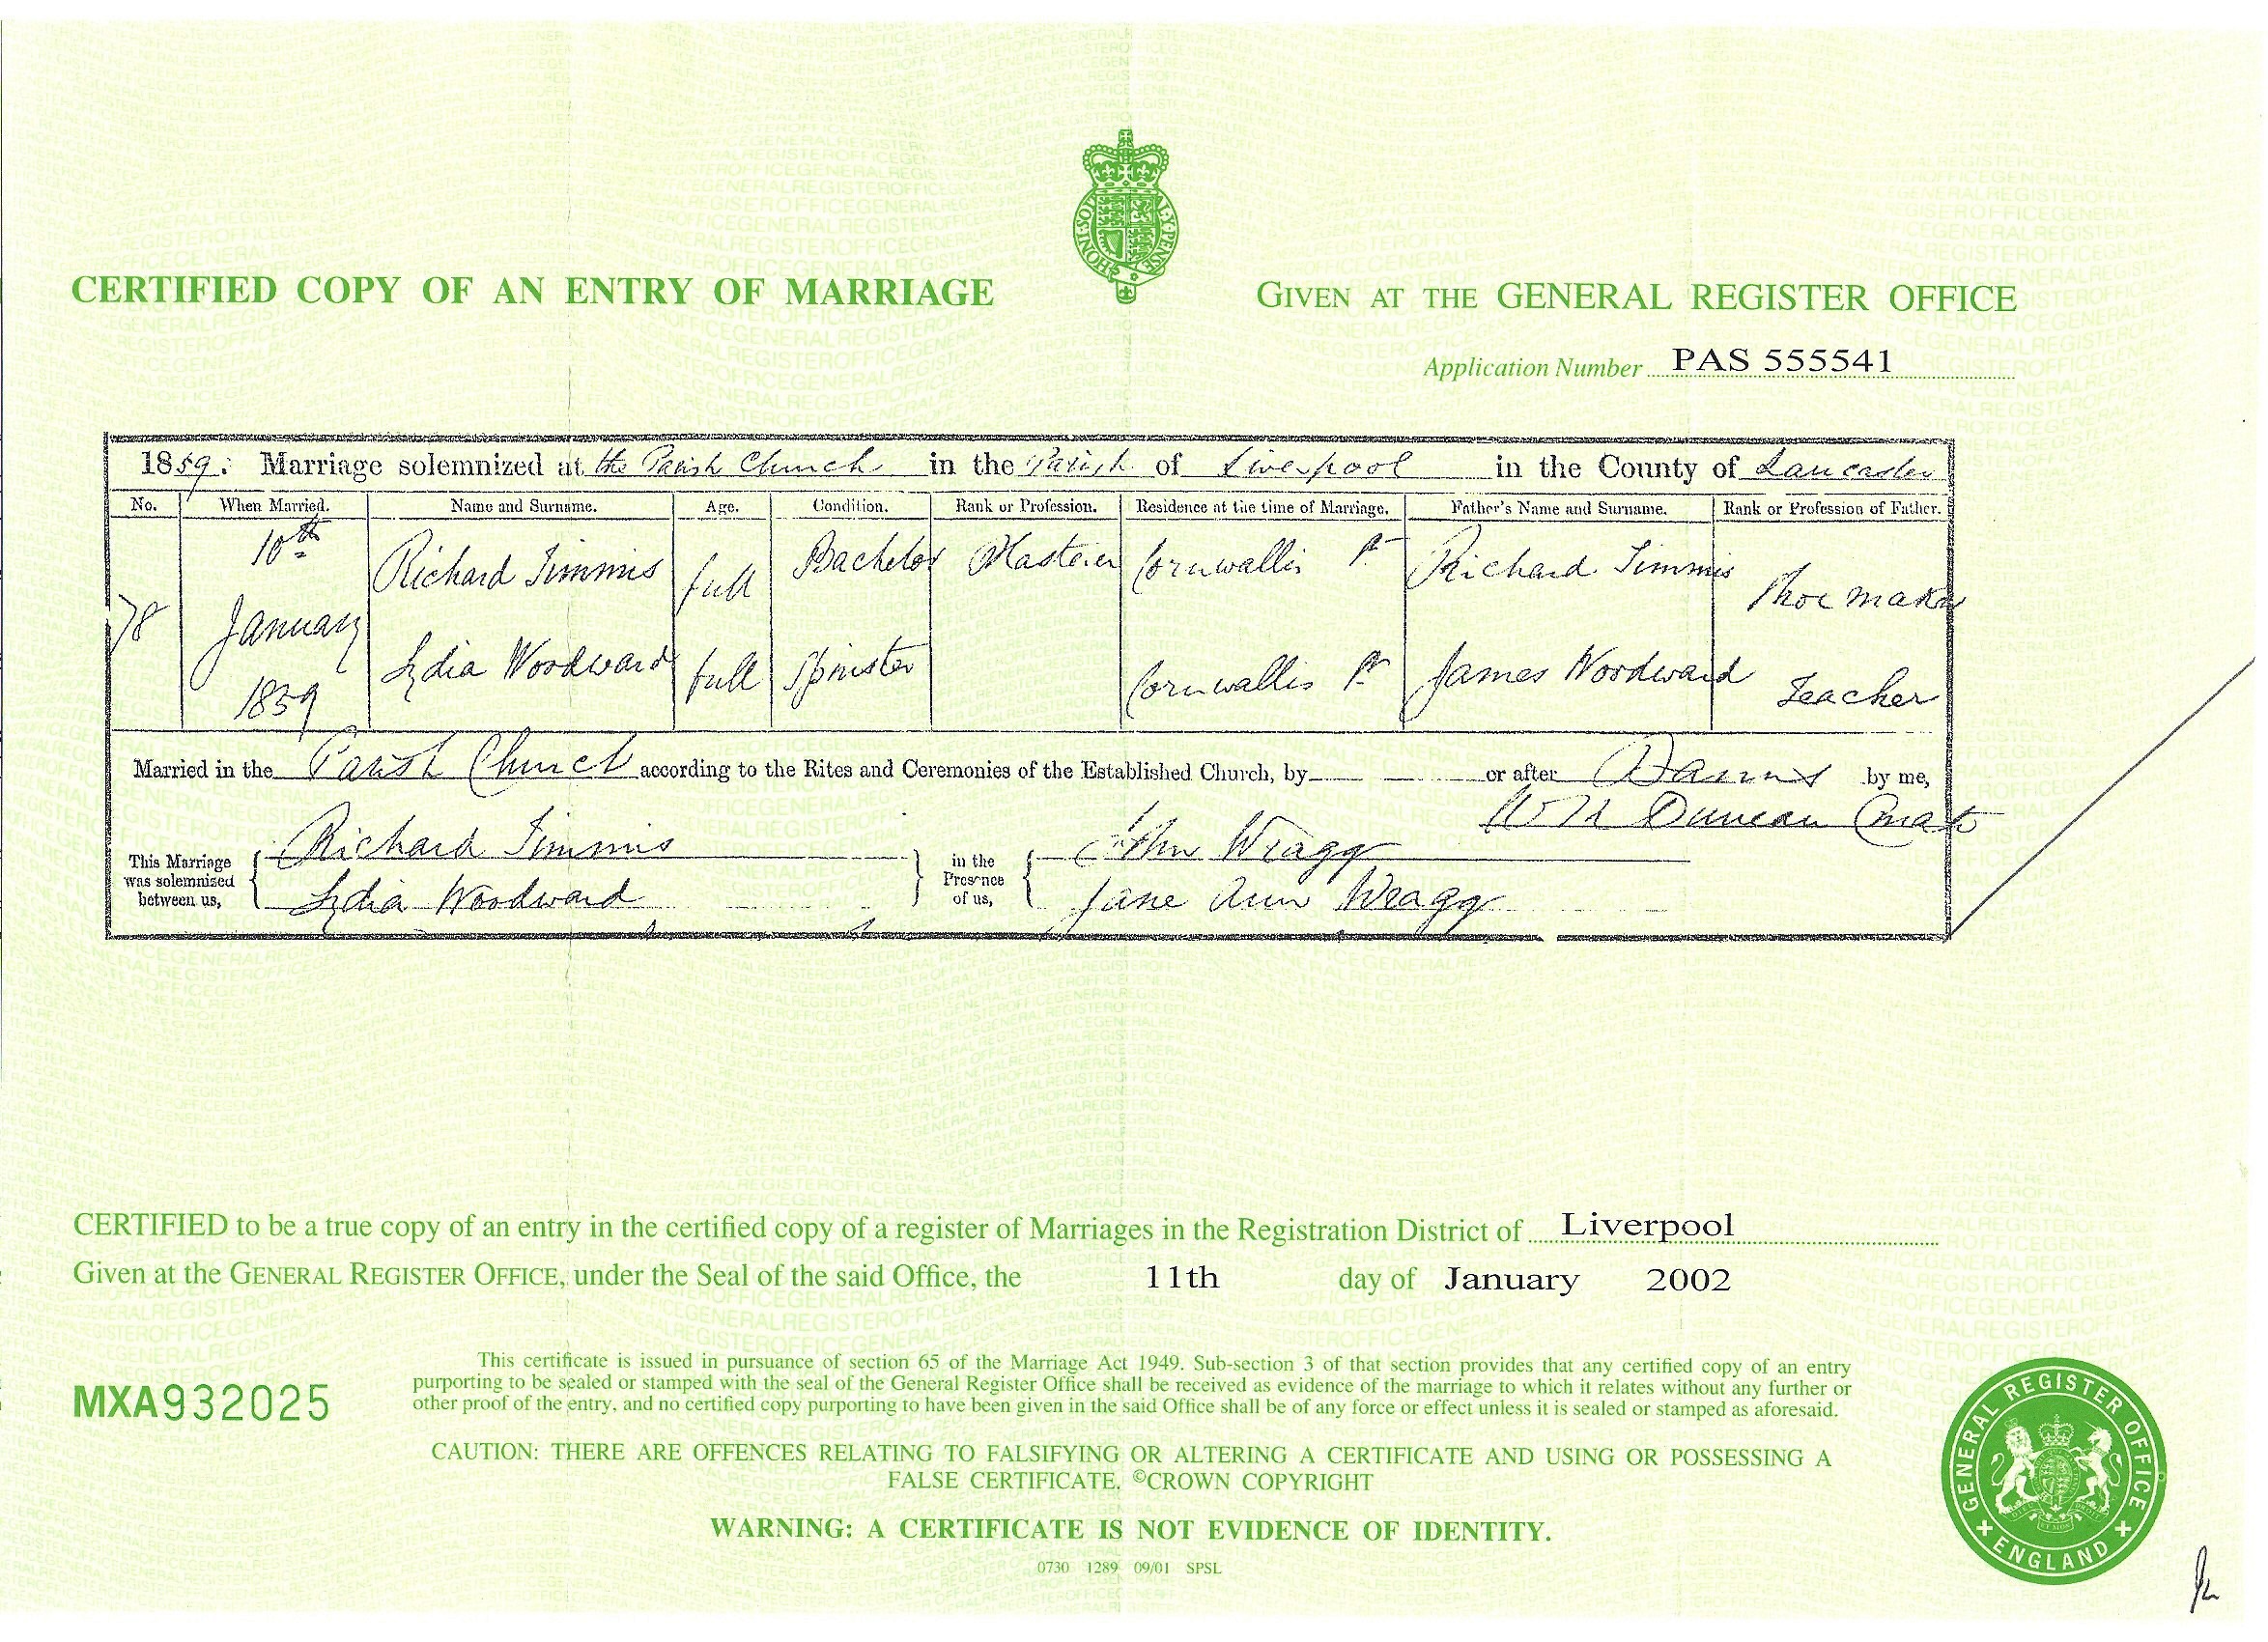 HONI·SOI AL·Y·PENSE
CERTIFIED COPY OF AN ENTRY OF MARRIAGE
GIVEN AT THE GENERAL REGISTER OFFICE
Application Number PAS 555541
1859. Marriage solemnized at the Parish Church in the Parish of Liverpool in the County of Lancaster
No. When Married. Name and Surname. Age. Condition. Rank or Profession. Residence at the time of Marriage. Father's Name and Surname. Rank or Profession of Father.
78 10th January 1859
Richard Timmis full Bachelor Plasterer Cornwallis St Richard Timmis Shoemaker
Lydia Woodward full Spinster Cornwallis St James Woodward Teacher
Married in the Parish Church according to the Rites and Ceremonies of the Established Church, by or after Banns by me,
Duncan Curate
This Marriage was solemnized between us, Richard Timmis in the Presence of us, John Wragg
Lydia Woodward Jane Ann Wragg
CERTIFIED to be a true copy of an entry in the certified copy of a register of Marriages in the Registration District of Liverpool
Given at the GENERAL REGISTER OFFICE, under the Seal of the said Office, the 11th day of January 2002
This certificate is issued in pursuance of section 65 of the Marriage Act 1949. Sub-section 3 of that section provides that any certified copy of an entry
purporting to be sealed or stamped with the seal of the General Register Office shall be received as evidence of the marriage to which it relates without any further or
other proof of the entry, and no certified copy purporting to have been given in the said Office shall be of any force or effect unless it is sealed or stamped as aforesaid.
MXA932025
CAUTION: THERE ARE OFFENCES RELATING TO FALSIFYING OR ALTERING A CERTIFICATE AND USING OR POSSESSING A
FALSE CERTIFICATE. ©CROWN COPYRIGHT
WARNING: A CERTIFICATE IS NOT EVIDENCE OF IDENTITY.
0730 1289 09/01 SPSL
GENERAL REGISTER OFFICE
ENGLAND